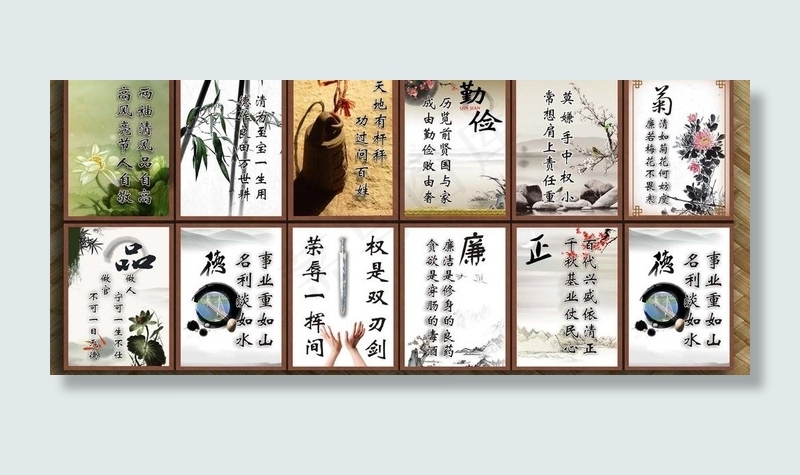 两袖清风品自高
高风亮节人自敬
清为至宝一生用
德作良田万世耕
天地有杆秤
功过问百姓
勤俭
QIN JIAN
历览前贤国与家
成由勤俭败由奢
莫嫌手中权小
常想肩上责任重
菊
清如菊花何妨瘦
廉若梅花不畏寒
品
做人
宁可一生不仕
做官
不可一日无德
德
事业重如山
名利淡如水
权是双刃剑
荣辱一挥间
廉
廉洁是修身的良药
贪欲是穿肠的毒酒
正
百代兴盛依清正
千秋基业仗民心
德
事业重如山
名利淡如水